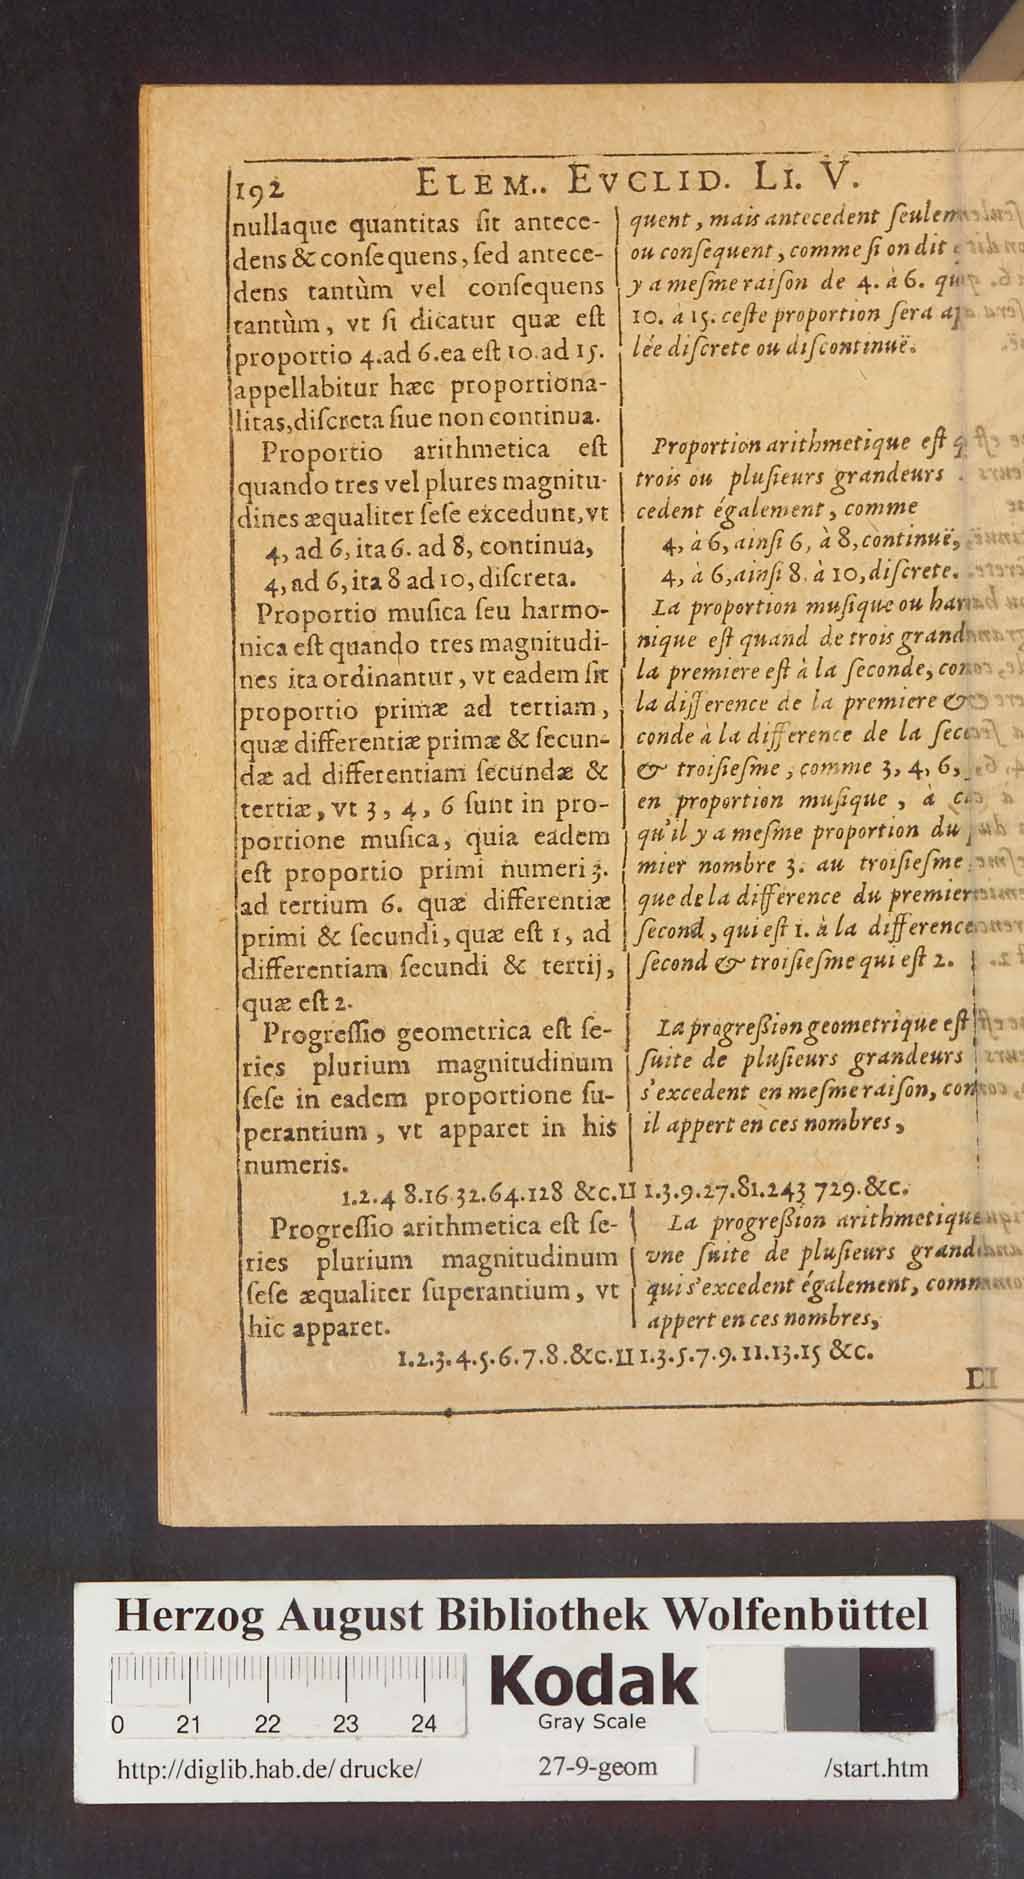 192 ELEM.. EVCLID. LI. V.
nullaque quantitas ſit antece-
dens & conſequens, ſed antece-
dens tantùm vel conſequens
tantùm, vt ſi dicatur quæ eſt
proportio 4.ad 6.ea eſt 10.ad 15.
appellabitur hæc proportiona-
litas,diſcreta ſiue non continua.
Proportio arithmetica eſt
quando tres vel plures magnitu-
dines æqualiter ſeſe excedunt,vt
4, ad 6, ita 6. ad 8, continua,
4, ad 6, ita 8 ad 10, diſcreta.
Proportio muſica ſeu harmo-
nica eſt quando tres magnitudi-
nes ita ordinantur, vt eadem ſit
proportio primæ ad tertiam,
quæ differentiæ primæ & ſecun-
dæ ad differentiam ſecundæ &
tertiæ, vt 3, 4, 6 ſunt in pro-
portione muſica, quia eadem
eſt proportio primi numeri 3.
ad tertium 6. quæ differentiæ
primi & ſecundi, quæ eſt 1, ad
differentiam ſecundi & tertij,
quæ eſt 2.
Progreſſio geometrica eſt ſe-
ries plurium magnitudinum
ſeſe in eadem proportione ſu-
perantium, vt apparet in his
numeris.
quent, mais antecedent ſeulem
ou conſequent, comme ſi on dit
y a meſme raiſon de 4. à 6. qu
10. à 15. ceſte proportion ſera
lée diſcrete ou diſcontinuë.
Proportion arithmetique eſt
trois ou pluſieurs grandeurs
cedent également, comme
4, à 6, ainſi 6, à 8, continuë,
4, à 6, ainſi 8. à 10, diſcrete.
La proportion muſique ou har
nique eſt quand de trois grand
la premiere eſt à la ſeconde, com
la difference de la premiere &
conde à la difference de la ſec
& troiſieſme, comme 3, 4, 6,
en proportion muſique, à
qu'il y a meſme proportion du
mier nombre 3. au troiſieſme
que de la difference du premier
ſecond, qui eſt 1. à la difference
ſecond & troiſieſme qui eſt 2.
La progreßion geometrique eſt
ſuite de pluſieurs grandeurs
s'excedent en meſme raiſon, com
il appert en ces nombres,
1.2.4 8.16 32.64.128 &c. II 1.3.9.27.81.243 729.&c.
Progreſſio arithmetica eſt ſe-
ries plurium magnitudinum
ſeſe æqualiter ſuperantium, vt
hic apparet.
La progreßion arithmetique
vne ſuite de pluſieurs grand
qui s'excedent également, comm
appert en ces nombres,
1.2.3.4.5.6.7.8.&c. II 1.3.5.7.9.11.13.15 &c.
DI
Herzog August Bibliothek Wolfenbüttel
0 21 22 23 24
Kodak
Gray Scale
http://diglib.hab.de/drucke/ 27-9-geom /start.htm